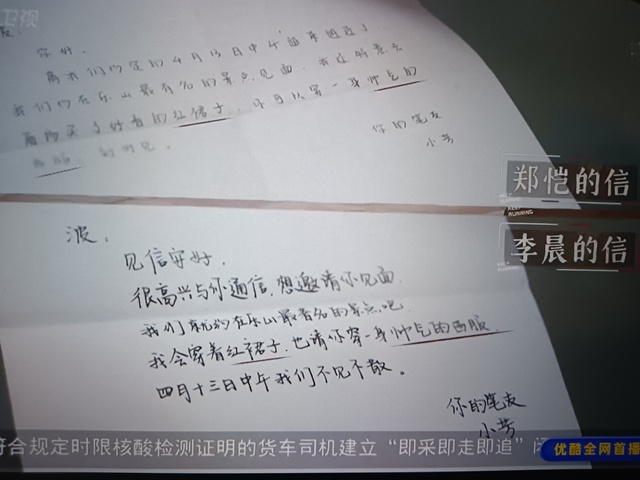 卫视
你好,
离我们约定的4月13日中午
我们约在乐山最有名的景点见面
好看的红裙子,你可以穿一身帅气的
西服
你的笔友
小芳
郑恺的信
KEEP RUNNING
李晨的信
波,
见信安好,
很高兴与你通信,想邀请你见面
我们就约在乐山最著名的景点吧
我会穿着红裙子,也请你穿一身帅气的西服,
四月十三日中午我们不见不散。
你的笔友
小芳
符合规定时限核酸检测证明的货车司机建立“即采即走即追”闭
优酷全网首播